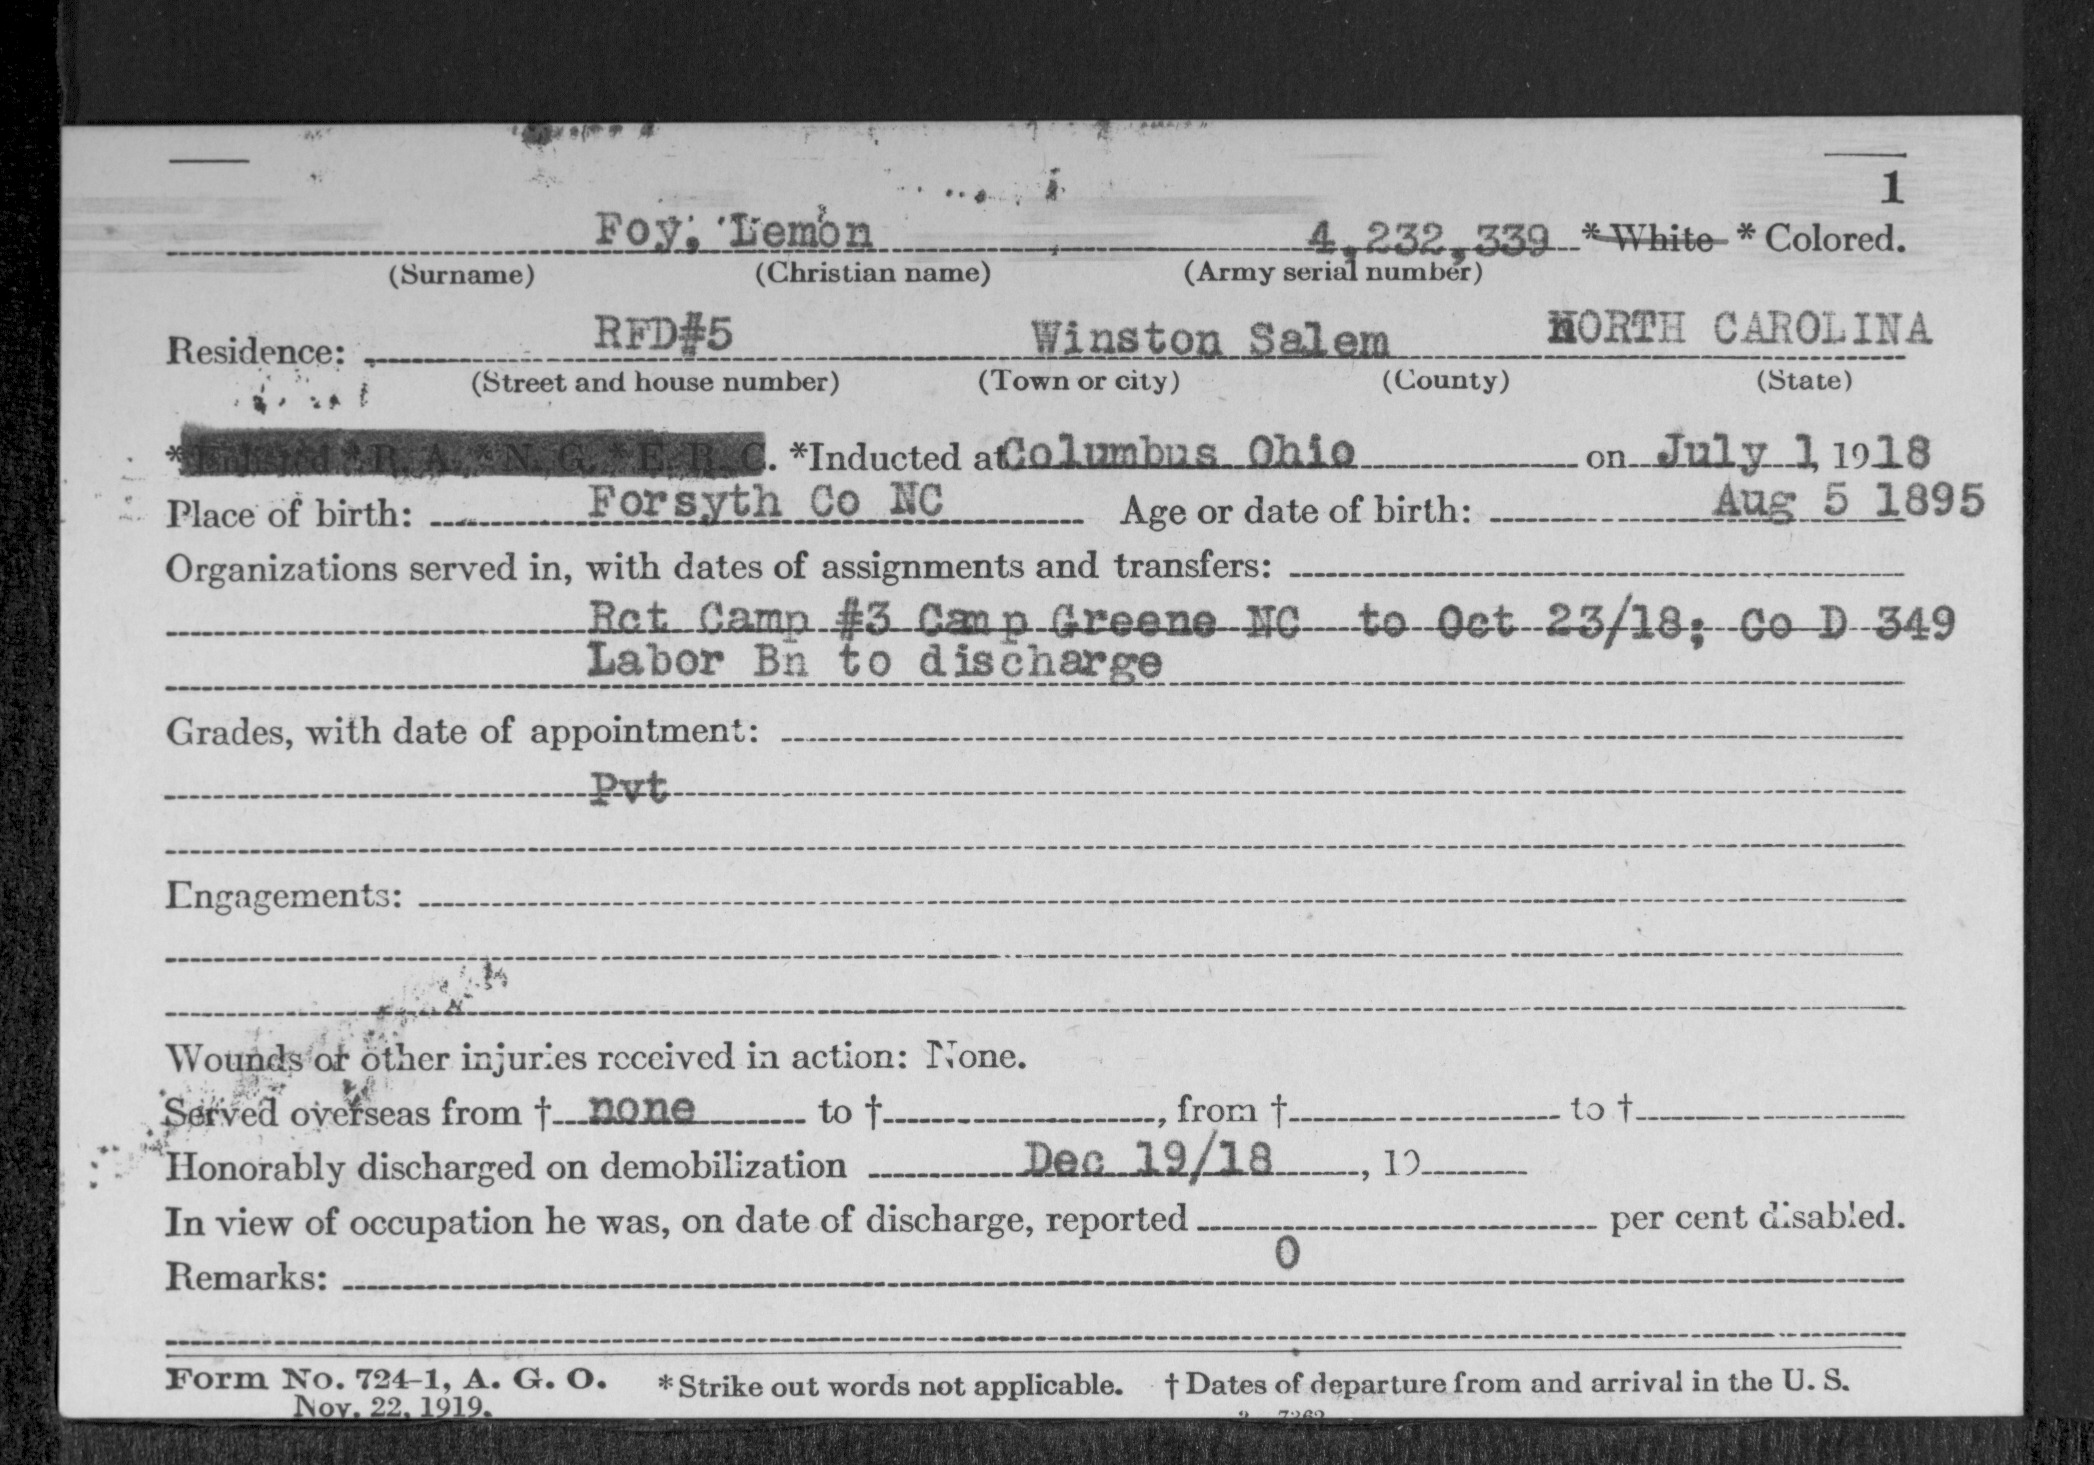 1
Foy, Lemon 4,232,339 *White * Colored.
(Surname) (Christian name) (Army serial number)
Residence: RFD#5 Winston Salem NORTH CAROLINA
(Street and house number) (Town or city) (County) (State)
*Enlisted *R. A. *N. G. *E. R. C. *Inducted at Columbus Ohio on July 1, 1918
Place of birth: Forsyth Co NC Age or date of birth: Aug 5 1895
Organizations served in, with dates of assignments and transfers:
Rct Camp #3 Camp Greene NC to Oct 23/18; Co D 349
Labor Bn to discharge
Grades, with date of appointment:
Pvt
Engagements:
Wounds or other injuries received in action: None.
Served overseas from † none to †, from † to †
Honorably discharged on demobilization Dec 19/18, 19
In view of occupation he was, on date of discharge, reported per cent disabled.
0
Remarks:
Form No. 724-1, A. G. O. *Strike out words not applicable. † Dates of departure from and arrival in the U. S.
Nov. 22, 1919.